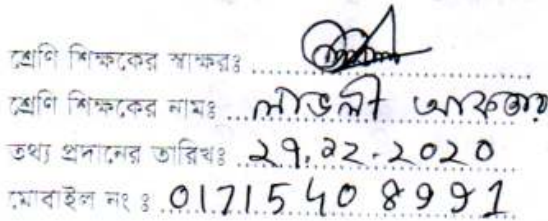 শ্রেণি শিক্ষকের স্বাক্ষরঃ
শ্রেণি শিক্ষকের নামঃ লাভলী আকতার
তথ্য প্রদানের তারিখঃ ২৭.১২.২০২০
মোবাইল নং ঃ 01715408991